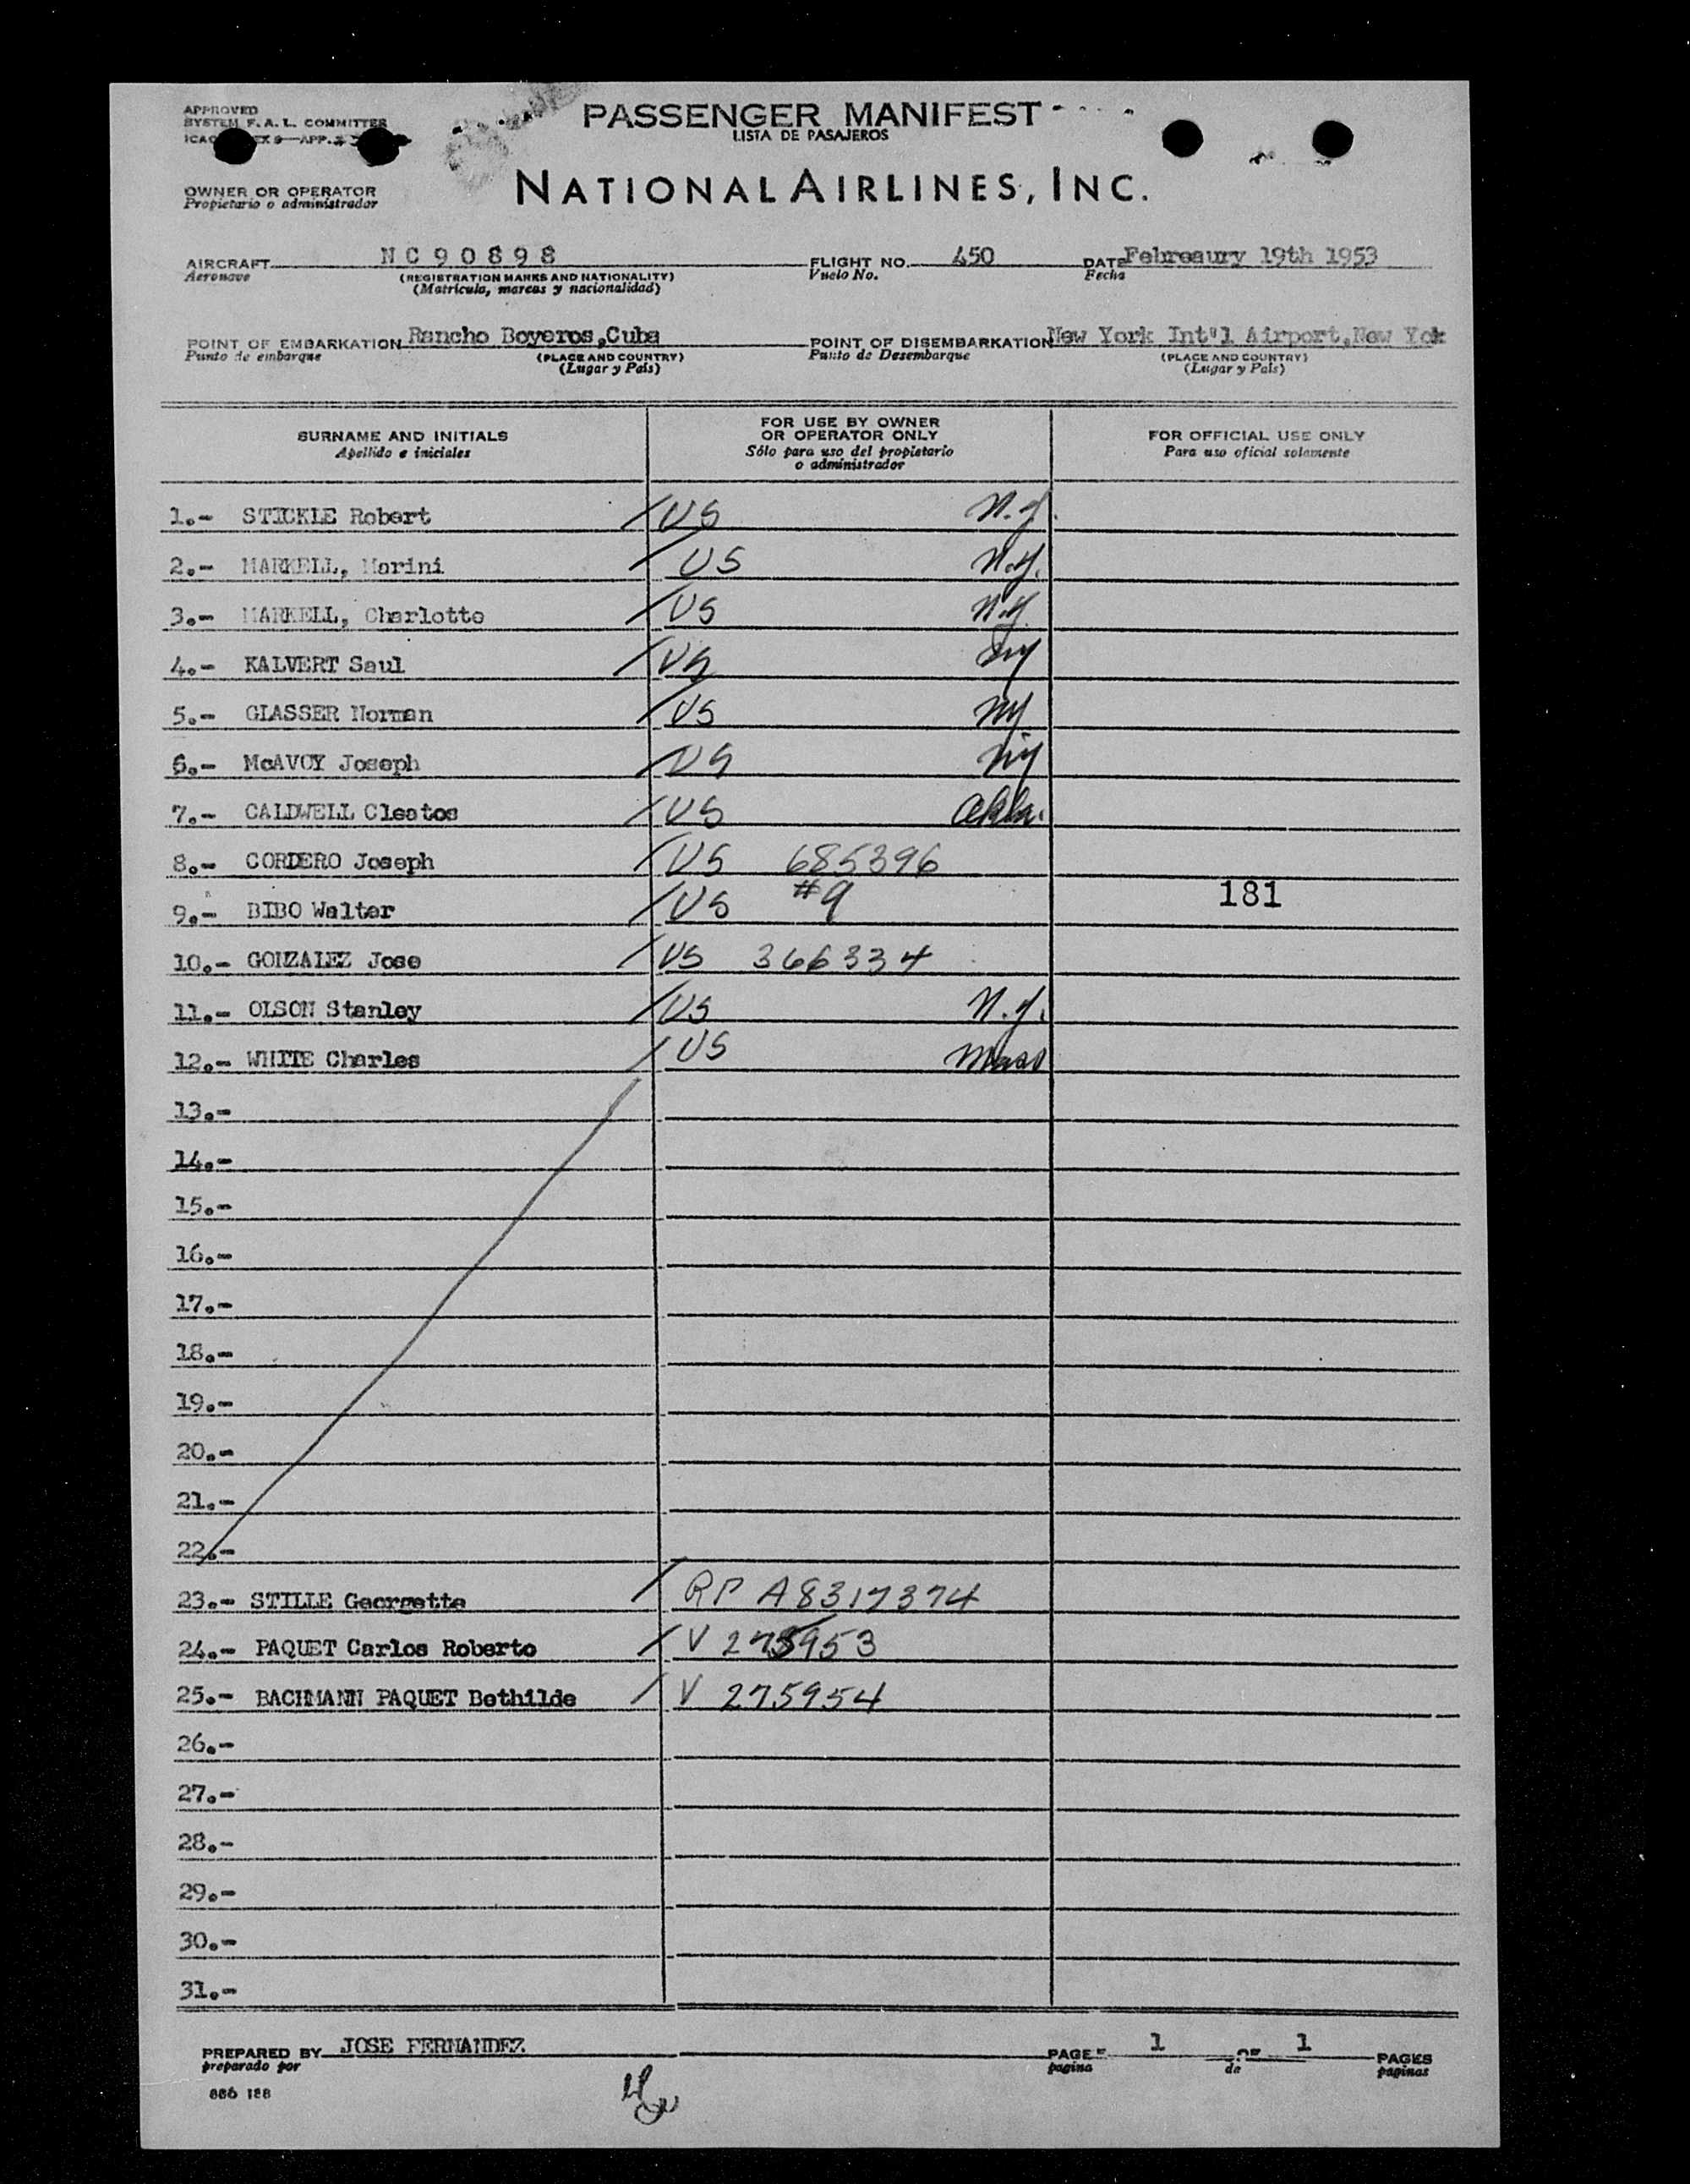 APPROVED
SYSTEM F. A. L. COMMITTEE
PASSENGER MANIFEST
LISTA DE PASAJEROS
OWNER OR OPERATOR
Propietario o administrador
NATIONAL AIRLINES, INC.
AIRCRAFT NC90898 FLIGHT NO. 450 DATE Febreaury 19th 1953
Aeronave (REGISTRATION MARKS AND NATIONALITY) Vuelo No. Fecha
(Matricula, marcas y nacionalidad)
POINT OF EMBARKATION Rancho Boyeros,Cuba POINT OF DISEMBARKATION New York Int'l Airport,New Yok
Punto de embarque (PLACE AND COUNTRY) Punto de Desembarque (PLACE AND COUNTRY)
(Lugar y País) (Lugar y País)
SURNAME AND INITIALS FOR USE BY OWNER OR OPERATOR ONLY FOR OFFICIAL USE ONLY
Apellido e iniciales Sólo para uso del propietario o administrador Para uso oficial solamente
1.- STICKLE Robert / US N.J.
2.- MARKELL, Marini / US N.Y.
3.- MARKELL, Charlotte / US N.Y.
4.- KALVERT Saul / US NY
5.- GLASSER Norman / US NY
6.- McAVOY Joseph / US NY
7.- CALDWELL Cleatos / US Okla.
8.- CORDERO Joseph / US 685396
9.- BIBO Walter / US #9 181
10.- GONZALEZ Jose / US 366334
11.- OLSON Stanley / US N.J.
12.- WHITE Charles / US Mass
13.-
14.-
15.-
16.-
17.-
18.-
19.-
20.-
21.-
22.-
23.- STILLE Georgette / RP A8317374
24.- PAQUET Carlos Roberto / V 275953
25.- BACHMANN PAQUET Bethilde / V 275954
26.-
27.-
28.-
29.-
30.-
31.-
PREPARED BY JOSE FERNANDEZ PAGE 1 OF 1 PAGES
preparado por pagina de paginas
886 188